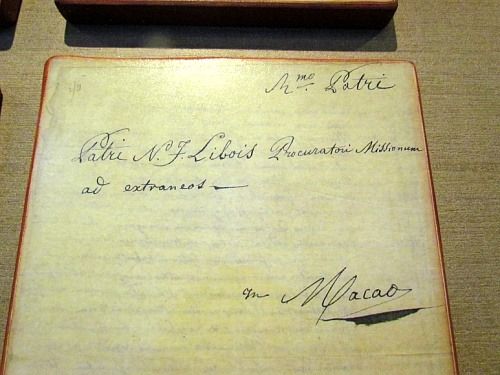 Rmo. Patri
Patri N. J. Libois Procuratori Missionum
ad extraneos
in Macao